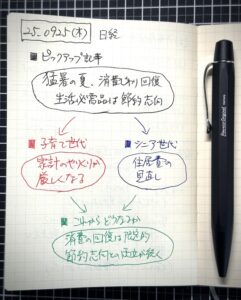 25.0925(木) 日経
■ピックアップ記事
猛暑の夏、消費じわり回復
生活必需品は節約志向
■子育て世代
家計のやりくりが
厳しくなる
■シニア世代
住居費の
見直し
■これからどうなるか
消費の回復は限定的
節約志向との両立が続く